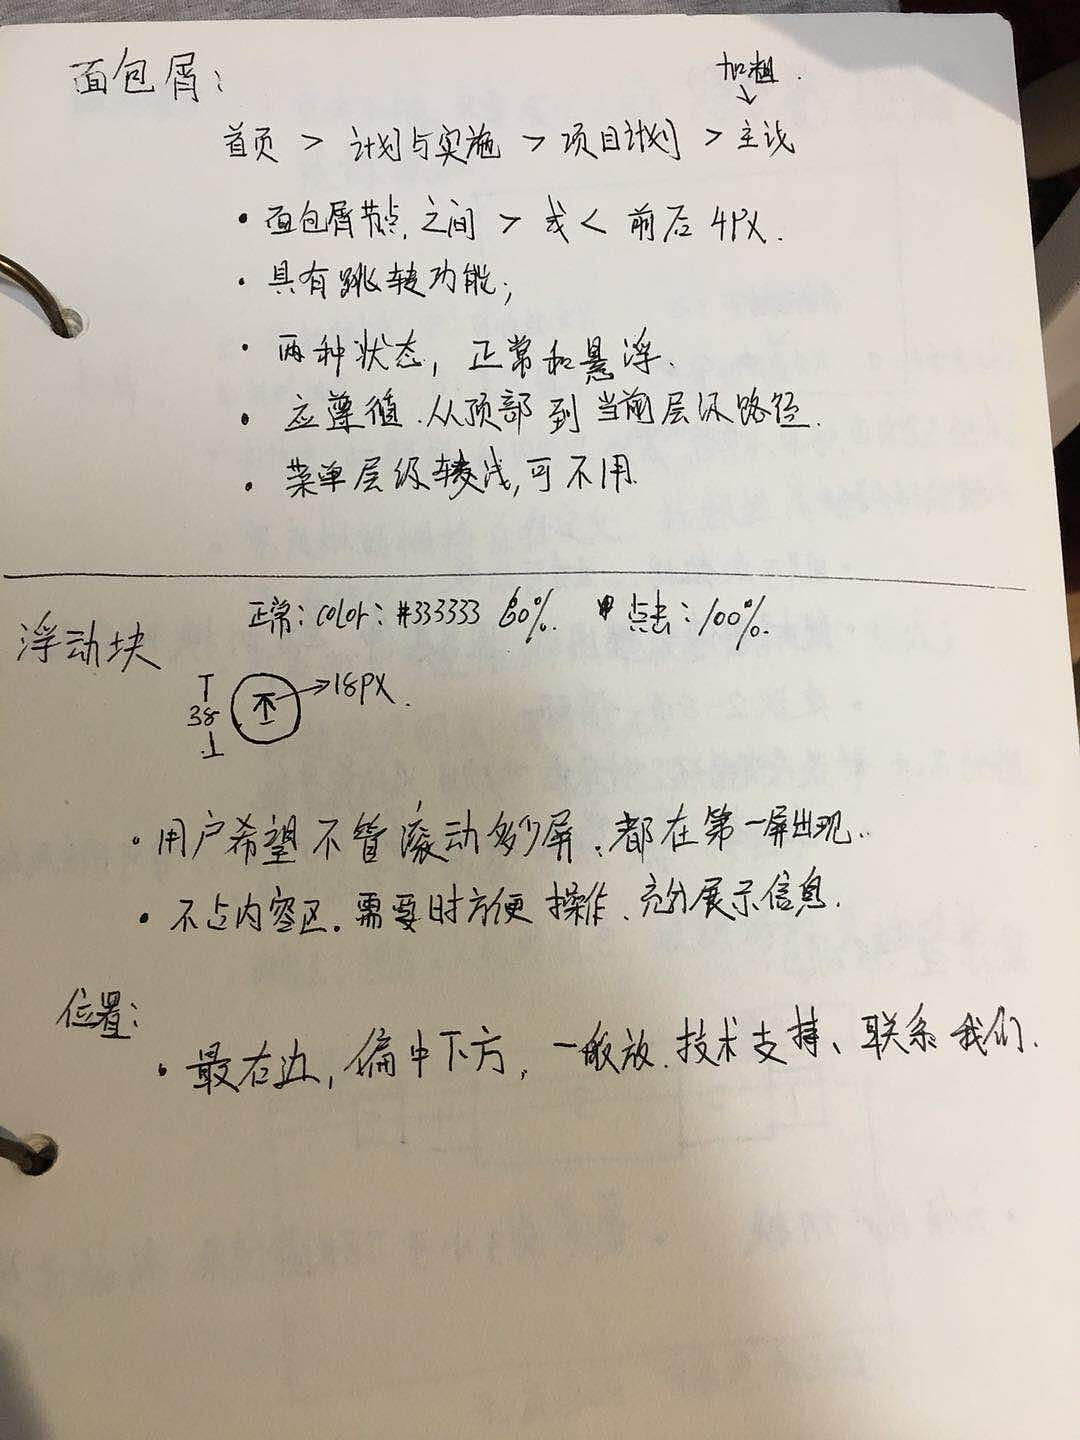 面包屑：
加粗.
↓
首页 > 计划与实施 > 项目计划 > 主计
• 面包屑节点,之间 > 或 < 前后 4PX.
• 具有跳转功能；
• 两种状态，正常和悬浮.
• 应尊循.从顶部到当前层级路径.
• 菜单层级较浅,可不用.
浮动块
正常：color：#333333 60%. 点击：100%.
38
→18PX.
• 用户希望不管滚动多少屏、都在第一屏出现..
• 不占内容区.需要时方便操作、充分展示信息.
位置：
• 最右边，偏中下方，一般放.技术支持、联系我们.